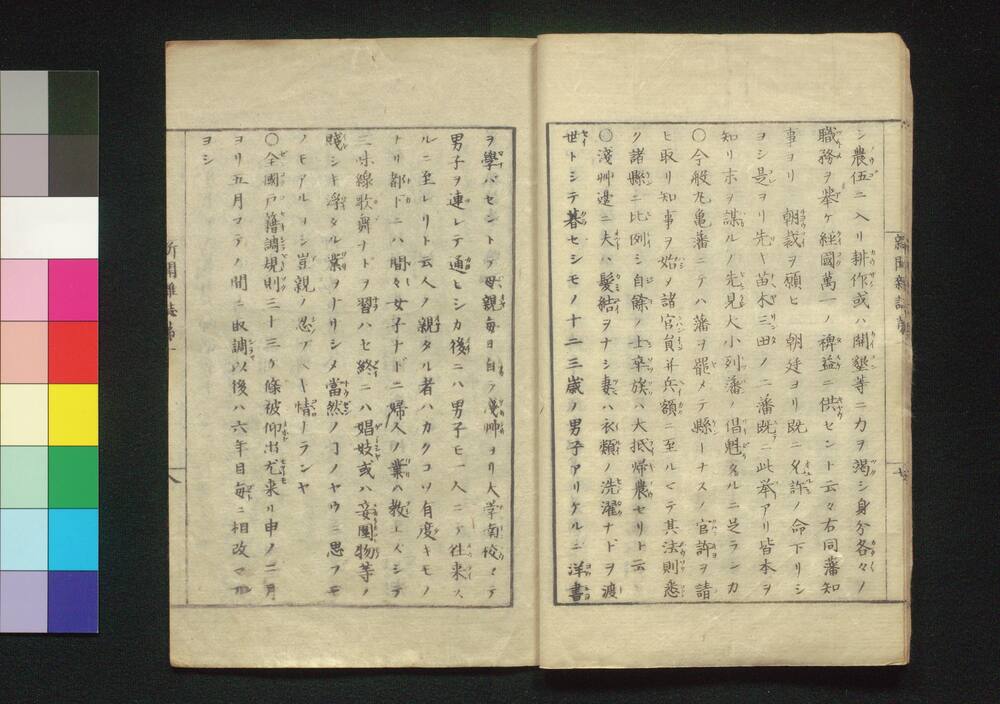 シ農伍ニ入リ耕作或ハ開墾等ニ力ヲ竭シ身分各々ノ
職務ヲ挙ケ經國萬一ノ裨益ニ供セント云々右同藩知
事ヨリ 朝裁ヲ願ヒ 朝廷ヨリ既ニ允許ノ命下リシ
ヨシ是ヨリ先キ苗木三田ノ二藩既ニ此挙アリ皆本ヲ
知リ末ヲ謀ルノ先見大小列藩ノ倡魁タルニ足ランカ
〇今般丸亀藩ニテハ藩ヲ罷メテ縣トナスノ官許ヲ請
ヒ取リ知事ヲ始メ諸官員并兵額ニ至ルマテ其法則悉
ク諸縣ニ比例シ自餘ノ士卒族ハ大抵帰農セリト云
〇淺艸邊ニ夫ハ髪結ヲナシ妻ハ衣類ノ洗濯ナドヲ渡
世トシテ暮セシモノ十二三歳ノ男子アリケルニ洋書
新聞雑誌第一
ヲ學バセントテ母親毎日自ラ淺艸ヨリ大学南校マデ
男子ヲ連レテ通ヒシカ後ニハ男子モ一人ニテ往来ス
ルニ至レリト云人ノ親タル者ハカクコソ有度キモノ
ナリ都下ニハ間々女子ナドニ婦人ノ業ハ教エズシテ
三味線歌舞ナドヲ習ハセ終ニハ娼妓或ハ妾圍物等ノ
賤シキ浮タル業ヲナサシメ當然ノコノヤウニ思フモ
ノモアルヨシ豈親ノ忍ブベキ情ナランヤ
〇全國戸籍調規則三十三ケ條被仰出尤来リ申ノ二月
ヨリ五月マテノ間ニ取調以後ハ六年目毎ニ相改マル
ヨシ
新聞雑誌第一
八